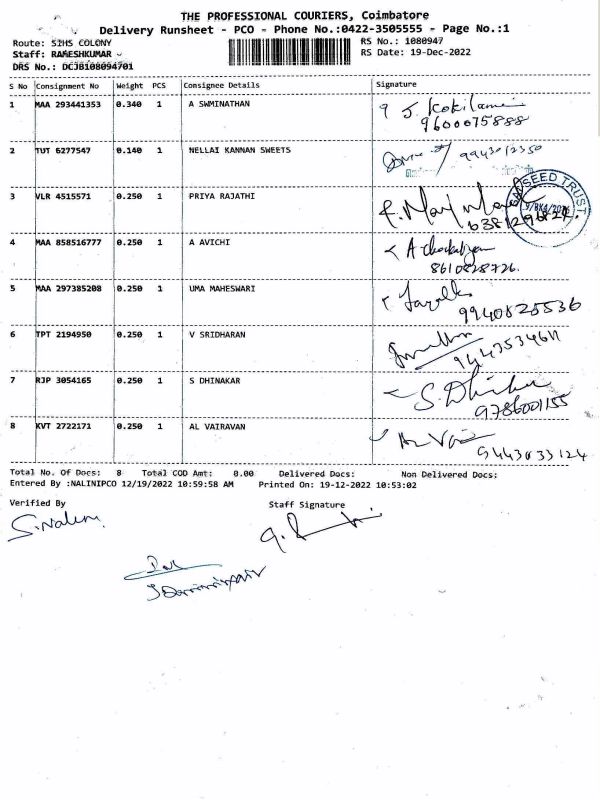 THE PROFESSIONAL COURIERS, Coimbatore
Delivery Runsheet - PCO - Phone No.:0422-3505555 - Page No.:1
Route: SIHS COLONY RS No.: 1080947
Staff: RAMESHKUMAR RS Date: 19-Dec-2022
DRS No.: DCJB108094701
S No Consignment No Weight PCS Consignee Details Signature
1 MAA 293441353 0.340 1 A SWMINATHAN J. Kokilamani
9600075888
2 TUT 6277547 0.140 1 NELLAI KANNAN SWEETS 9943012350
3 VLR 4515571 0.250 1 PRIYA RAJATHI
SEED TRUST
4 MAA 858516777 0.250 1 A AVICHI A Chockalingam
8610828726.
5 MAA 297385208 0.250 1 UMA MAHESWARI
9940825536
6 TPT 2194950 0.250 1 V SRIDHARAN
9443534611
7 RJP 3054165 0.250 1 S DHINAKAR S. Dhinakar
9786001155
8 KVT 2722171 0.250 1 AL VAIRAVAN AL Vai
9443033124
Total No. Of Docs: 8 Total COD Amt: 0.00 Delivered Docs: Non Delivered Docs:
Entered By :NALINIPCO 12/19/2022 10:59:58 AM Printed On: 19-12-2022 10:53:02
Verified By Staff Signature
S. Nalini